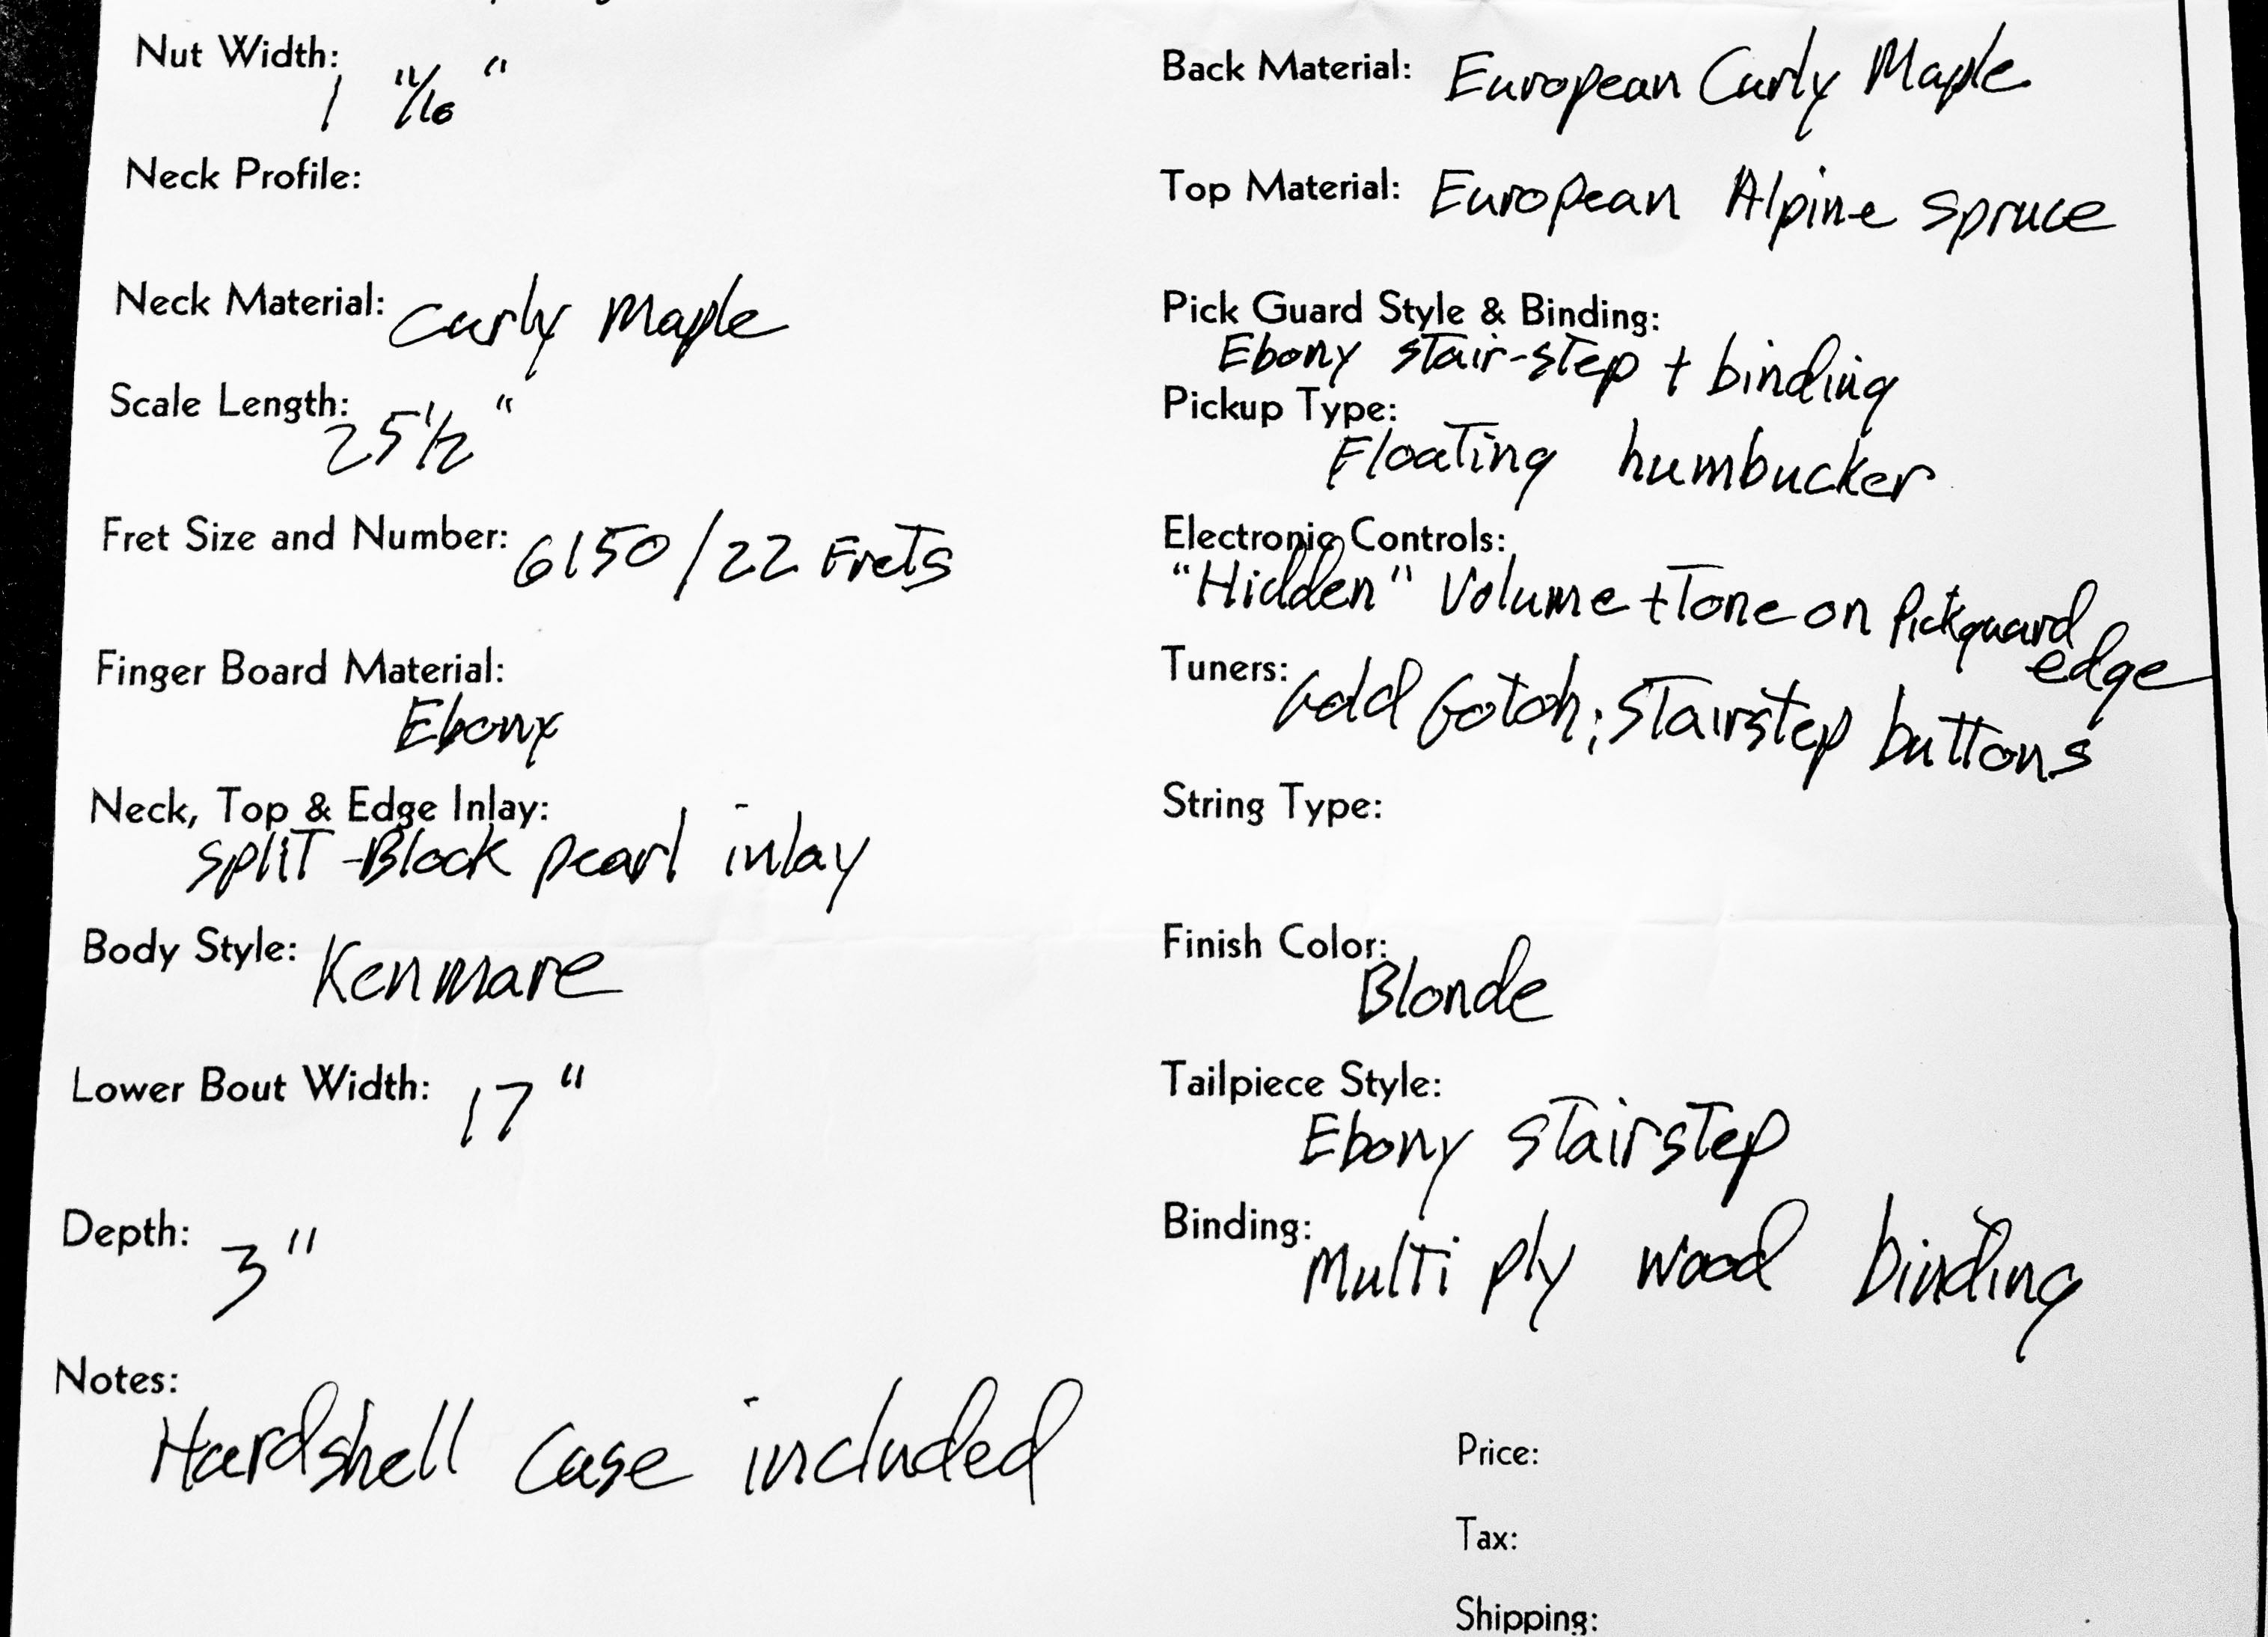 Nut Width:
1 11/16 "
Neck Profile:
Neck Material: Curly Maple
Scale Length: 25 1/2 "
Fret Size and Number: 6150/22 Frets
Finger Board Material:
Ebony
Neck, Top & Edge Inlay:
Split-Block pearl inlay
Body Style: Kenmare
Lower Bout Width: 17 "
Depth: 3 "
Notes:
Hardshell Case included
Back Material: European Curly Maple
Top Material: European Alpine Spruce
Pick Guard Style & Binding:
Ebony stair-step + binding
Pickup Type:
Floating humbucker
Electronic Controls:
"Hidden" Volume + Tone on Pickguard
edge
Tuners: Gold Gotoh; Stairstep buttons
String Type:
Finish Color:
Blonde
Tailpiece Style:
Ebony Stairstep
Binding: Multi ply wood binding
Price:
Tax:
Shipping: